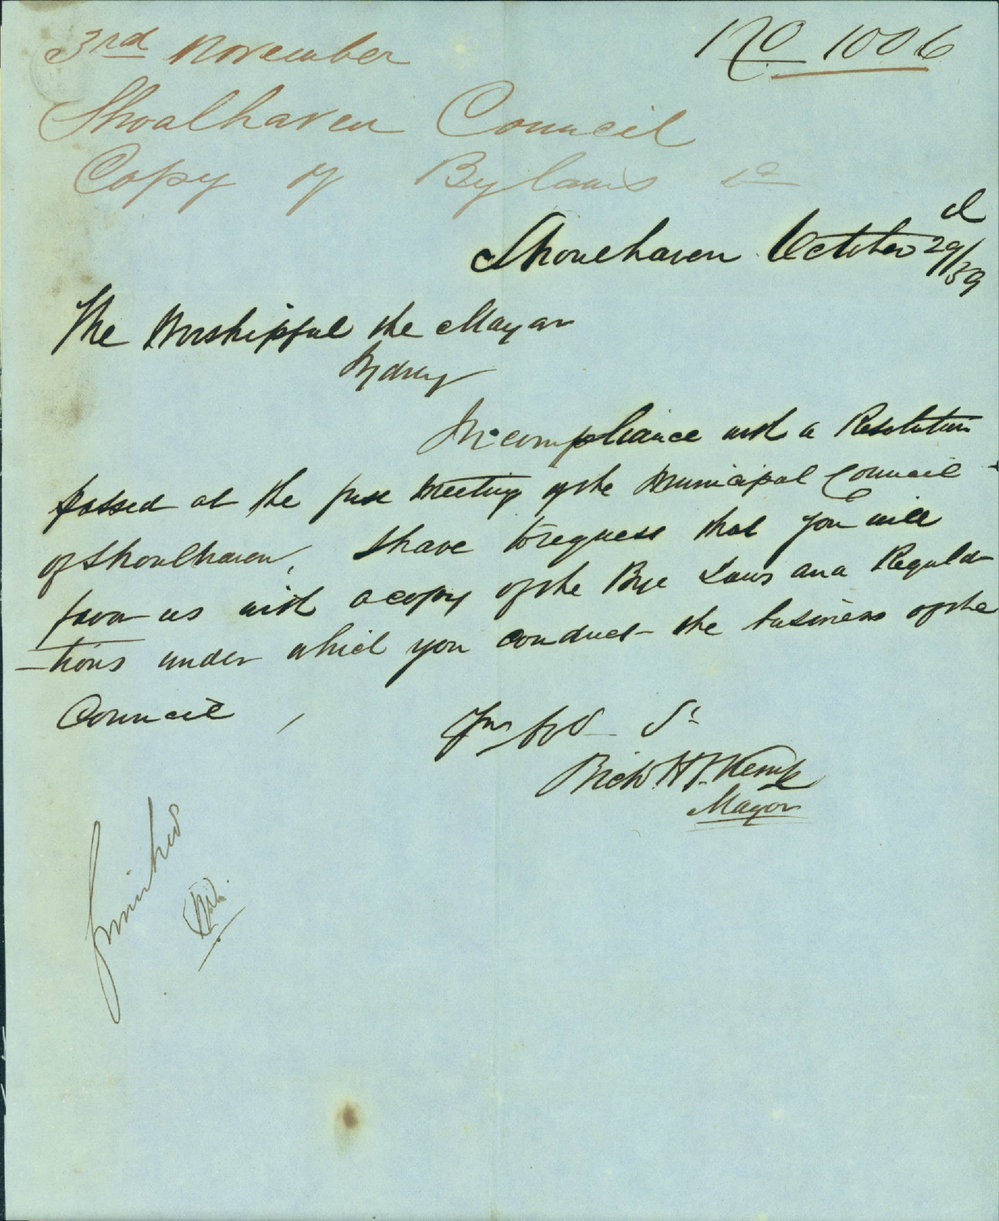 3rd November
No 1006
Shoalhaven Council
Copy of Bylaws &c
Shoalhaven October 29/59
The Worshipful the Mayor
Sydney
In compliance with a Resolution
passed at the first Meeting of the Municipal Council
of Shoalhaven, I have to request that you will
favor us with a copy of the Bye Laws and Regula-
-tions under which you conduct the business of the
Council,
Sr
H Kemp
Mayor